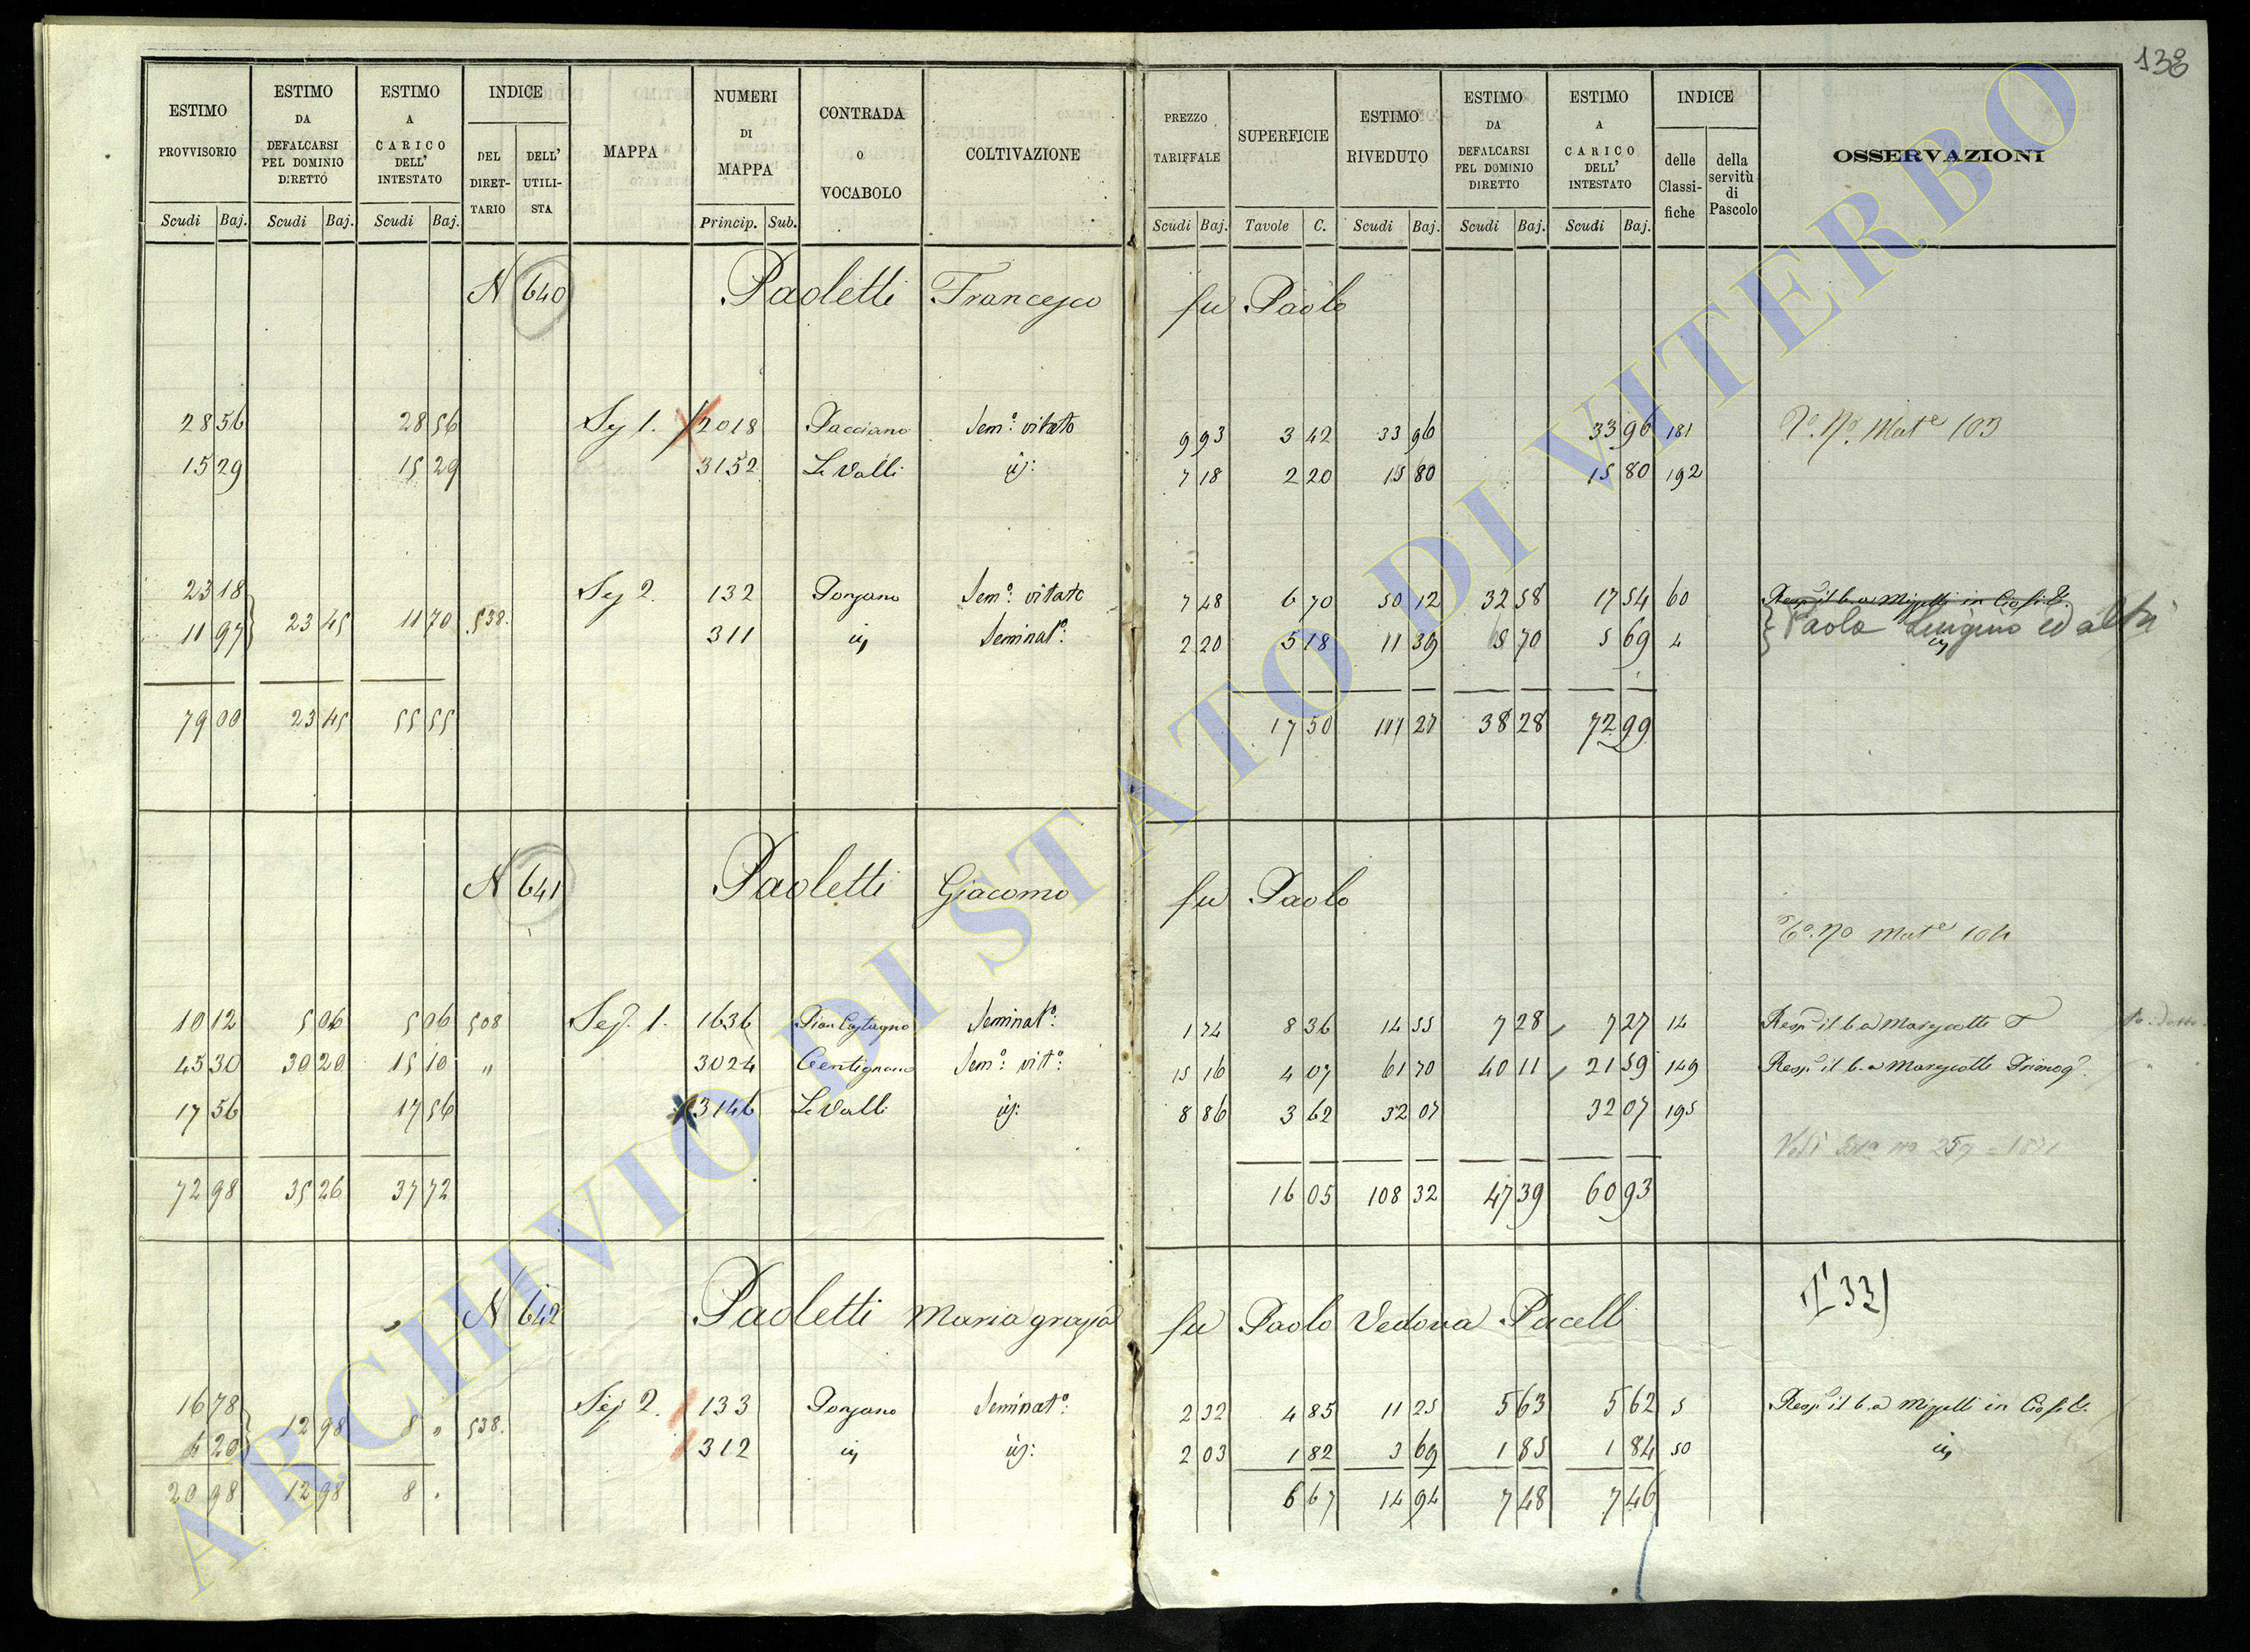 138
ESTIMO PROVVISORIO Scudi Baj. ESTIMO DA DEFALCARSI PEL DOMINIO DIRETTO Scudi Baj. ESTIMO A CARICO DELL' INTESTATO Scudi Baj. INDICE DEL DIRET-TARIO DELL' UTILI-STA MAPPA NUMERI DI MAPPA Princip. Sub. CONTRADA O VOCABOLO COLTIVAZIONE PREZZO TARIFFALE Scudi Baj. SUPERFICIE Tavole C. ESTIMO RIVEDUTO Scudi Baj. ESTIMO DA DEFALCARSI PEL DOMINIO DIRETTO Scudi Baj. ESTIMO A CARICO DELL' INTESTATO Scudi Baj. INDICE delle Classi-fiche della servitù di Pascolo OSSERVAZIONI
N 640 Paoletti Francesco fu Paolo
28 56 28 56 Sez 1. 2018 Pacciano Sem.° vitato 9 93 3 42 33 96 33 96 181 Mat.e 103
15 29 15 29 3152 Le Valli id: 7 18 2 20 15 80 15 80 192
23 18 Sez 2. 132 Ponzano Sem.° vitato 7 48 6 70 50 12 32 58 17 54 60 Resp. il b. a
11 97 23 45 11 70 538. 311 id Seminat.° 2 20 5 18 11 39 5 70 5 69 4 Paolo Luigino ed altri
79 00 23 45 55 55 17 50 111 27 38 28 72 99
N 641 Paoletti Giacomo fu Paolo
Mat.e 104
10 12 5 06 5 06 508 Sez. 1. 1636 Pian Castagno Seminat.° 1 74 8 36 14 55 7 28 7 27 14 Resp. il b. a Marescotti
45 30 30 20 15 10 " 3024 Centignano Sem.° vit.° 15 16 4 07 61 70 40 11 21 59 149 Resp. il b. a Marescotti Primog.
17 56 17 56 3146 Le Valli id: 8 86 3 62 32 07 32 07 195
Vedi 259 = 1871
72 98 35 26 37 72 16 05 108 32 47 39 60 93
N 642 Paoletti Maria grazia fu Paolo Vedova Pucelli 33
16 78 Sez 2. 133 Ponzano Seminat.° 2 32 4 85 11 25 5 63 5 62 5 Resp. il b. a in
4 20 12 98 8 " 538. 312 id id: 2 03 1 82 3 69 1 85 1 84 50 id
20 98 12 98 8 . 6 67 14 94 7 48 7 46
ARCHIVIO DI STATO DI VITERBO